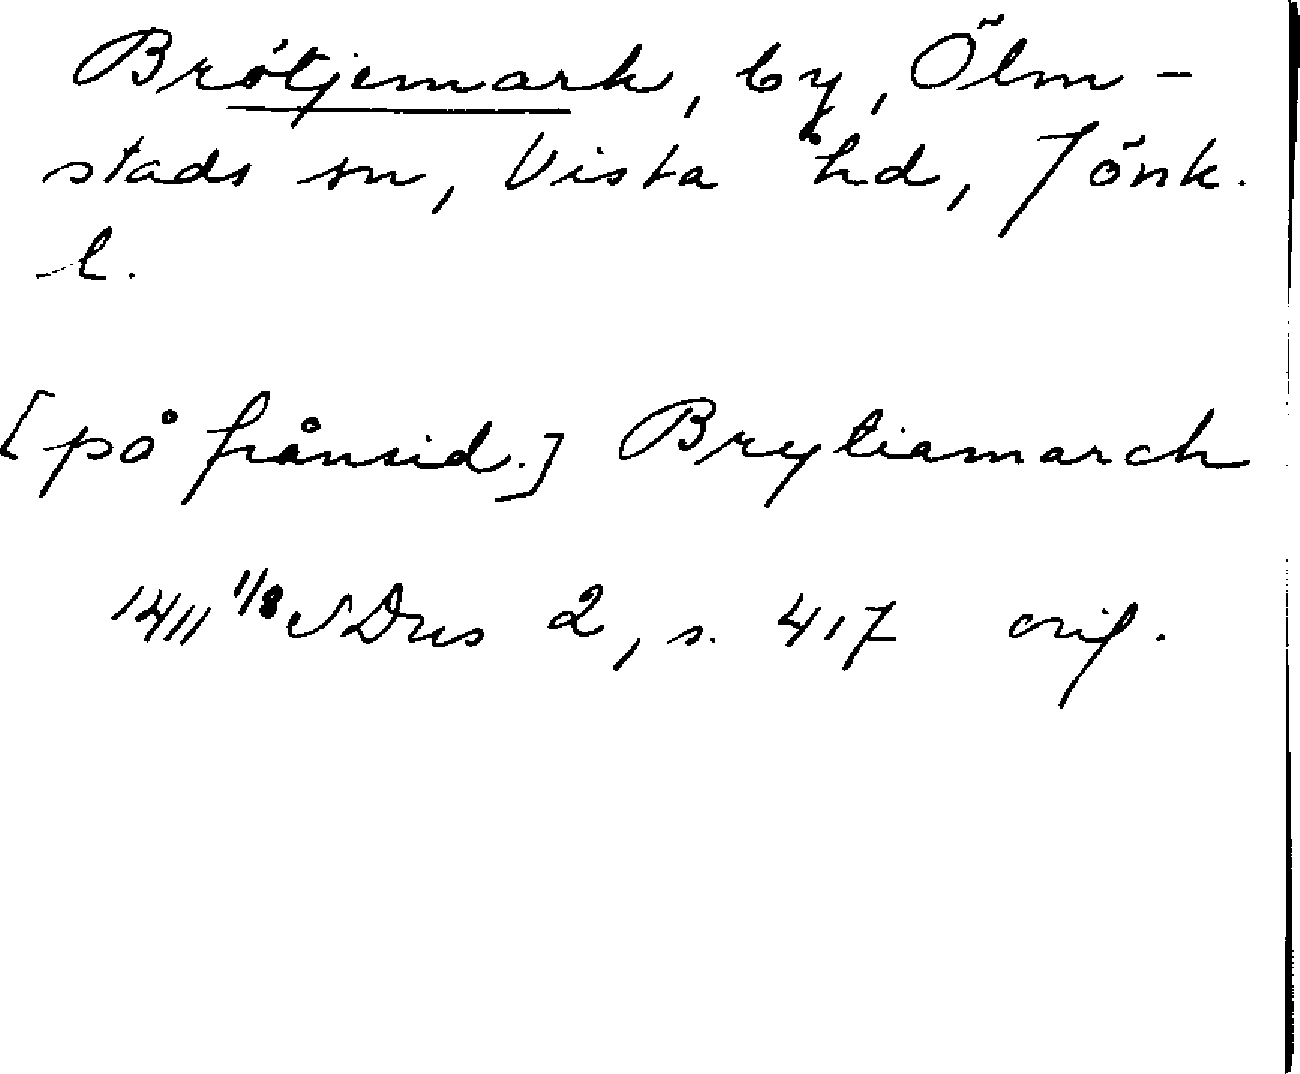 Brötjemark, by, Ölm-
stads sn, Vista hd, Jönk.
l.
[på frånsid.] Brytiamarch
1411 1/8 SDns 2, s. 417 orig.